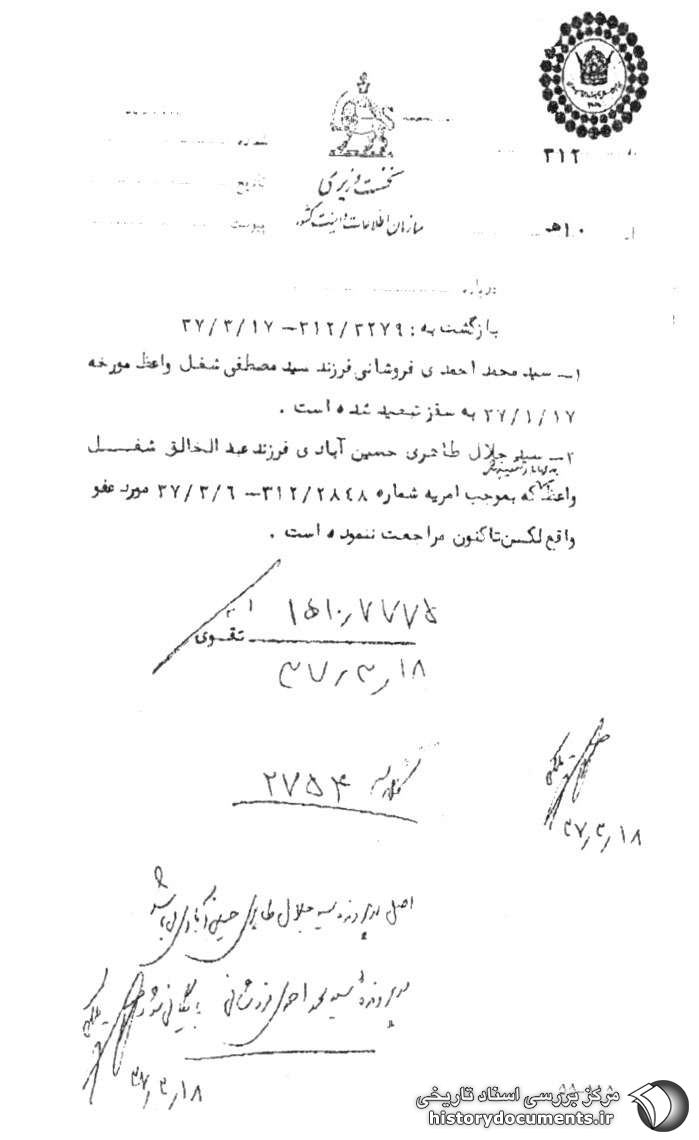 شماره
تاریخ
پیوست
نخست وزیری
سازمان اطلاعات و امنیت کشور
به ۳۱۲
از ۱۰هـ
درباره
بازگشت به : ۳۱۲/۲۲۷۹-۳۷/۳/۱۷
۱- سید محمد احمدی فروشانی فرزند سید مصطفی شغل واعظ مورخه
۳۷/۱/۱۷ به سقز تبعید شده است .
۲- سید جلال طاهری حسین آبادی فرزند عبدالخالق شغل
واعظ که بموجب امریه شماره ۳۱۲/۲۸۴۸-۳۷/۳/۶ مورد عفو
واقع لکن تاکنون مراجعت ننموده است .
۱۵۱۰٫۷۷۷۵
تقوی
۳۷٫۳٫۱۸
۲۷۵۴
۳۷٫۳٫۱۸
اصل در پرونده سید جلال طاهری حسین آبادی
در پرونده سید محمد احمدی فروشانی بایگانی شود
۳۷٫۳٫۱۸
مرکز بررسی اسناد تاریخی
historydocuments.ir